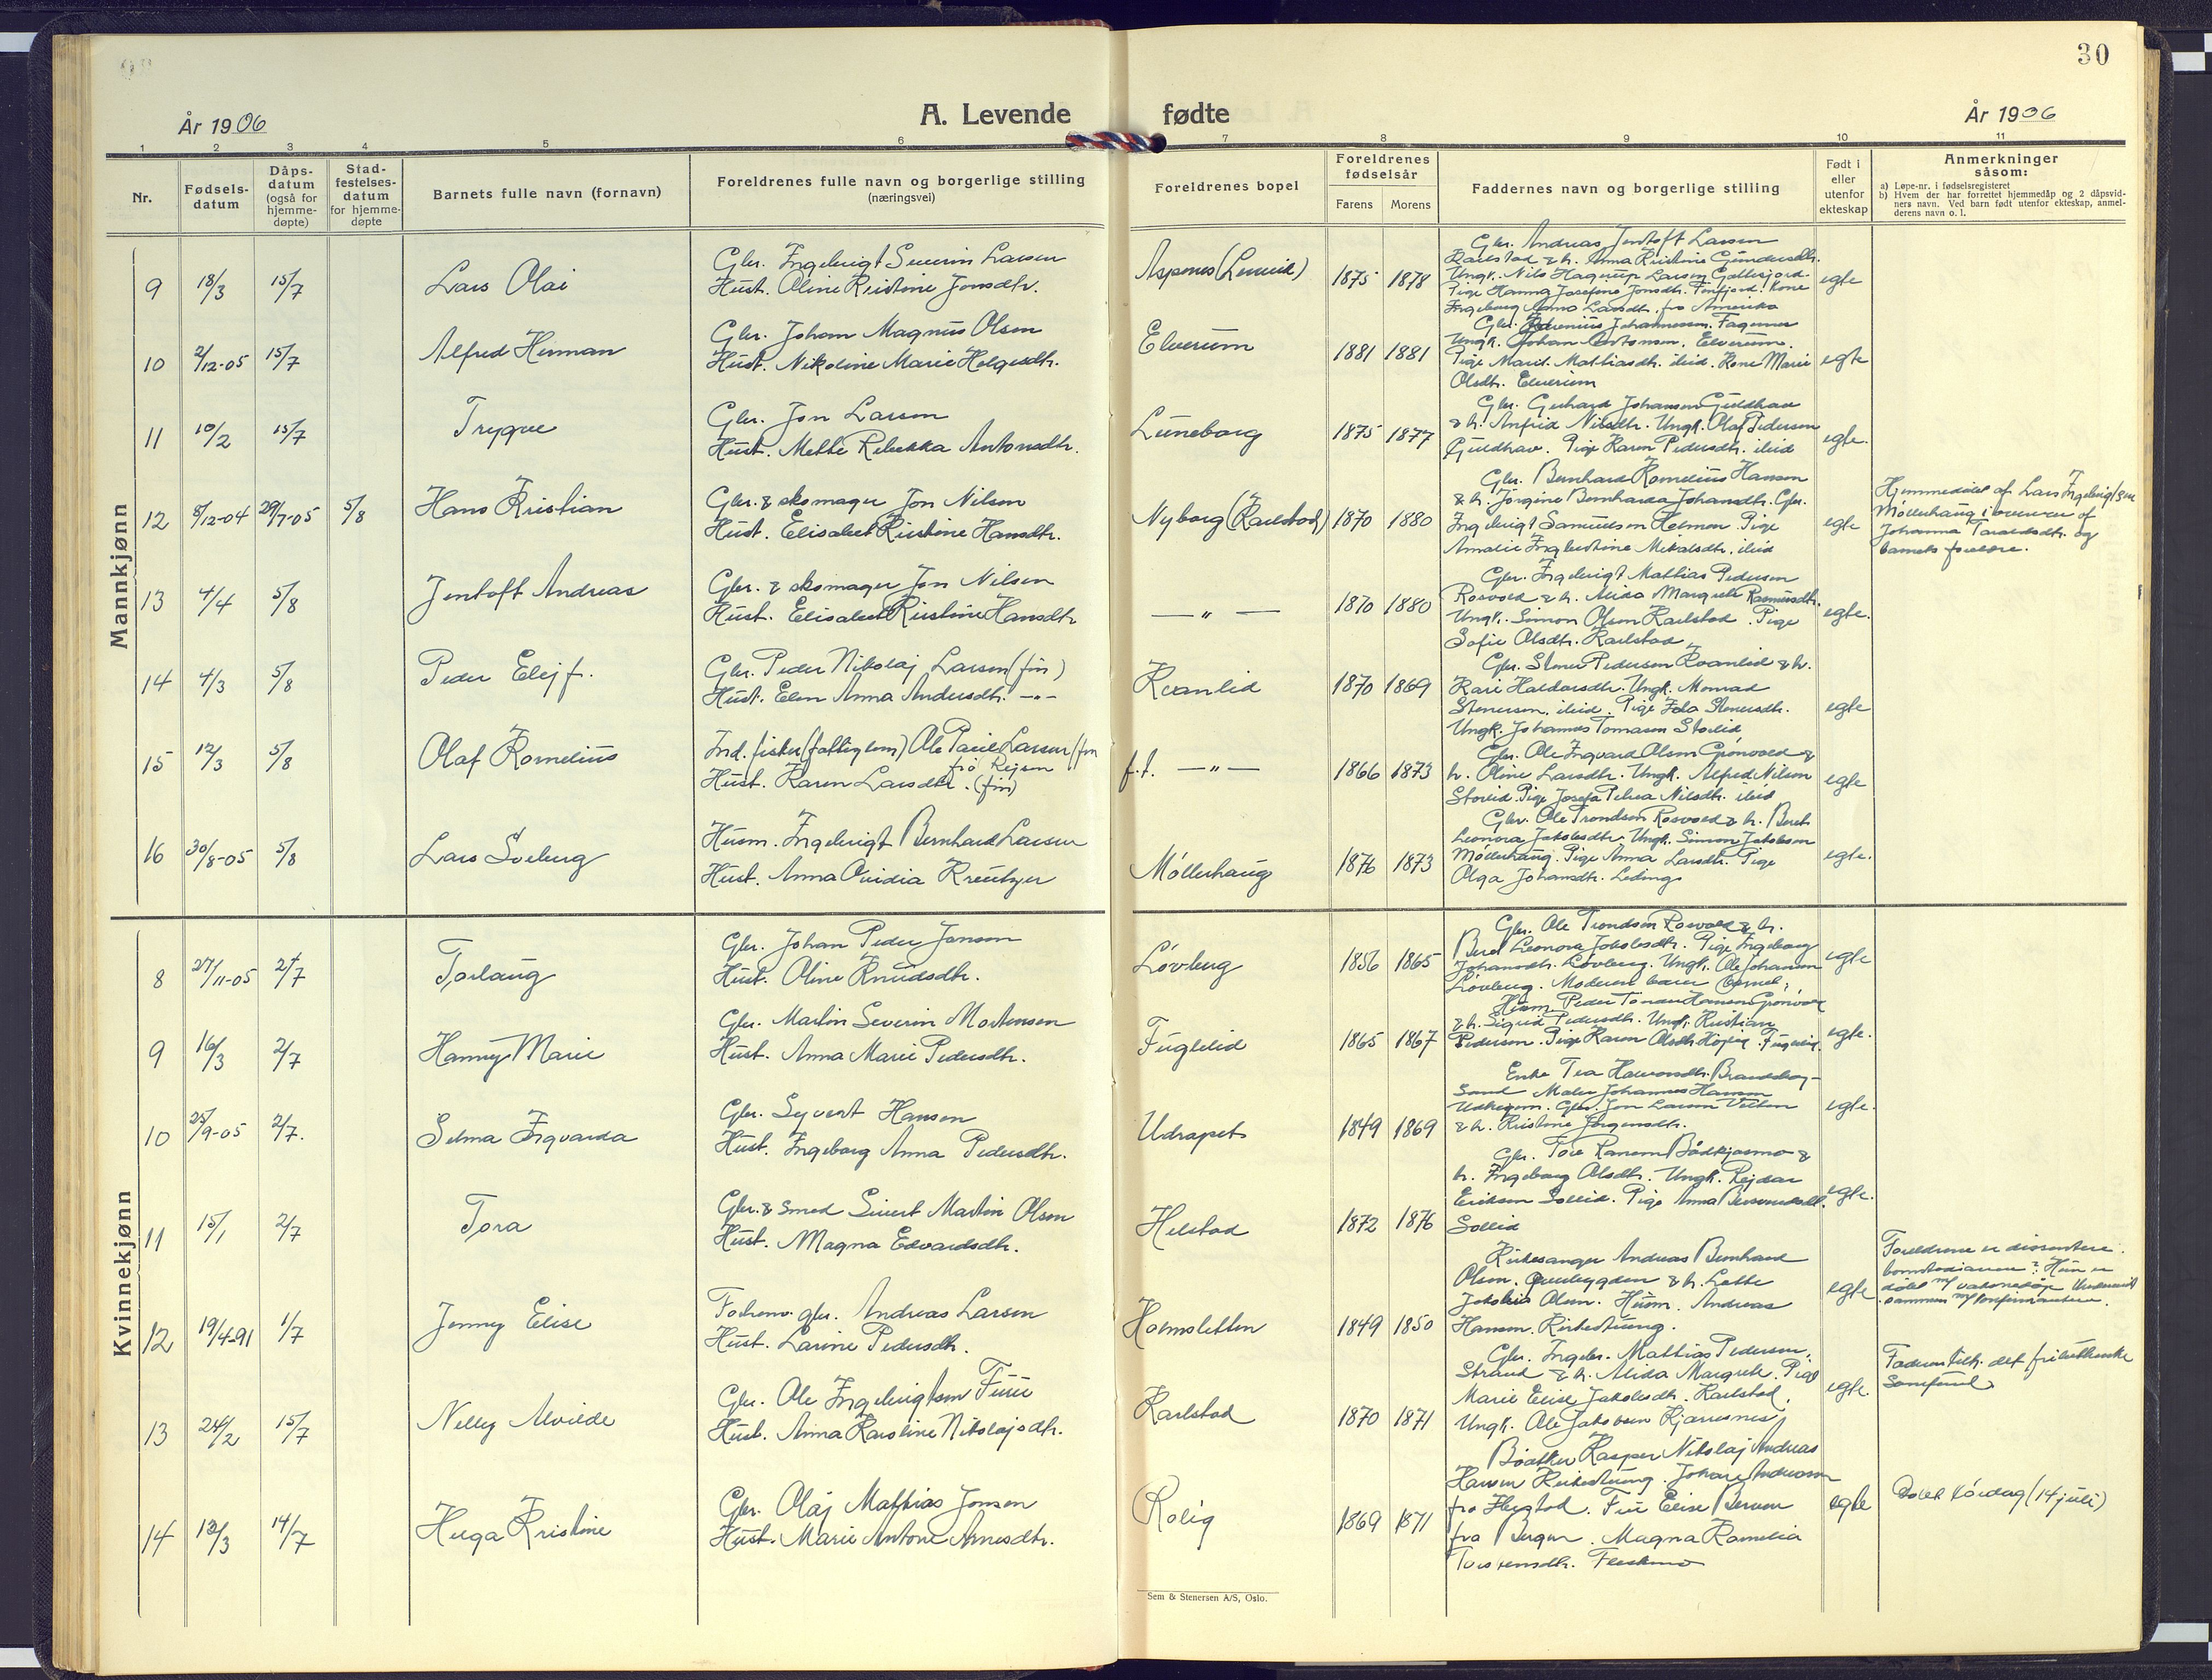 30
År 1906
A. Levende fødte
År 1906
1 2 3 4 5 6 7 8 9 10 11
Nr.
Fødsels-
datum
Dåps-
datum
(også for
hjemme-
døpte)
Stad-
festelses-
datum
for hjemme-
døpte
Barnets fulle navn (fornavn)
Foreldrenes fulle navn og borgerlige stilling
(næringsvei)
Foreldrenes bopel
Foreldrenes
fødselsår
Farens Morens
Faddernes navn og borgerlige stilling
Født i
eller
utenfor
ekteskap
Anmerkninger
såsom:
a) Løpe-nr. i fødselsregisteret
b) Hvem der har forrettet hjemmedåp og 2 dåpsvid-
ners navn. Ved barn født utenfor ekteskap, anmel-
derens navn o. l.
Mannkjønn
9 18/3 15/7 Lars Olai
Gbr. Ingebrigt Severin Larsen
Hust. Oline Kristine Jonsdtr.
1875 1878
Gbr. Andreas Jentoft Larsen
Karlstad & h. Anna Kristine Gundersdtr.
Ungk. Nils Hagerup Larsen
Pige Hanna Josefine Jonsdtr. Kone
Ingeborg Anna Larsdtr. fra Amerika
egte
10 2/12-05 15/7 Alfred Herman
Gbr. Johan Magnus Olsen
Hust. Nikoline Marie Helgesdtr.
Elverum 1881 1881
Gbr. Johannessen, Fagernes
Ungk. Johan Antonsen, Elverum.
Pige Marit Mathiasdtr. ibid. Kone Marie
Olsdtr. Elverum
egte
11 10/2 15/7 Trygve
Gbr. Jon Larsen
Hust. Mette Rebekka Antonsdtr.
Luneborg 1875 1877
Gbr. Gerhard Johansen Guldhav
& h. Anfrid Nilsdtr. Ungk. Olaf Pederson
Guldhav. Pige Karen Pedersdtr. ibid
egte.
12 8/12-04 29/7-05 5/8 Hans Kristian
Gbr. & skomager Jon Nilsen
Hust. Elisabet Kristine Hansdtr.
Nyborg (Karlstad) 1870 1880
Gbr. Bernhard Kornelius Hansen
& h. Jørgine Bernharda Johansdtr. Gbr.
Ingebrigt Samuelsen Holmen. Pige
Amalie Ingbertine Mikalsdtr. ibid
egte
Hjemmedøbt af Lars Ingebrigtsen
Møllerhaug i overvær af
Johanna Taraldsdtr. og
barnets forældre.
13 4/4 5/8 Jentoft Andreas
Gbr. & skomager Jon Nilsen
Hust. Elisabet Kristine Hansdtr
— „ — 1870 1880
Gbr. Ingebrigt Mathias Pedersen
Rosvold & h. Alida Margrete Rasmusdtr.
Ungk. Simon Olsen Karlstad. Pige
Sofie Olsdtr. Karlstad
egte.
14 4/3 5/8 Peder Elejf.
Gbr. Peder Nikolaj Larsen (fin)
Hust. Elen Anna Andersdtr. —„—
Kvanlid 1870 1869
Gbr. Stener Pedersen Kvanlid & h.
Kari Haldorsdtr. Ungk. Monrad
Stenersen, ibid. Pige Ida Stenersdtr.
Ungk. Johannes Tomasen Storlid
egte
15 12/3 5/8 Olaf Kornelius
Ind. fisker (fattiglem) Ole Paul Larsen (fin
Hust. Karen Larsdtr. (fin)
f.t. — „ — 1866 1873
Gbr. Ole Ingvard Olsen Grønvold &
h. Oline Larsdtr. Ungk. Alfred Nilsen
Storlid. Pige Josefa Petrea Nilsdtr. ibid
egte
16 30/8-05 5/8 Lars Solberg
Husm. Ingebrigt Bernhard Larsen
Hust. Anna Ovidia Kreutzer
Møllerhaug 1876 1873
Gbr. Ole Trondsen Rosvold & h. Beret
Leonora Jakobsdtr. Ungk. Simon Jakobsen
Møllerhaug. Pige Anna Larsdtr. Pige
Olga Johansdtr. Ledings
egte.
Kvinnekjønn
8 27/11-05 2/7 Torlaug
Gbr. Johan Peder Jonsen
Hust. Oline Knudsdtr.
Løvberg 1856 1865
Gbr. Ole Trondsen Rosvold & h.
Beret Leonora Jakobsdtr. Pige Ingeborg
Johansdtr. Løvberg. Ungk. Ole Johansen
Løvberg. Moderen barnet.
egte
9 16/3 2/7 Hanny Marie
Gbr. Martin Severin Mortensen
Hust. Anna Marie Pedersdtr.
Fuglelid 1865 1867
Husm. Peder Tønder Hansen Grønvold
& h. Sigrid Pedersdtr. Ungk. Kristian
Pedersen. Pige Karen Olsdtr.
egte.
10 25/9-05 2/7. Selma Ingvarda
Gbr. Syvert Hansen
Hust. Ingeborg Anna Pedersdtr.
Udrapets 1849 1869
Enke Tea Halvorsdtr. Brandskog-
Maler Johannes Hansen
Gbr. Jon Larsen
& h. Kristine Jørgensdtr.
egte.
11 15/1 2/7 Tora
Gbr. & smed Sivert Martin Olsen
Hust. Magna Edvardsdtr.
Helstad 1872 1876
Gbr. Tore Ranesen Bådkjosmo &
h. Ingeborg Olsdtr. Ungk. Rejdar
Eriksen Sollid. Pige Anna
Sollid
egte.
12 19/4-91 1/7 Jenny Elise
gbr. Andreas Larsen
Hust. Larine Pedersdtr.
Holmsletten 1849 1850
Kirkesanger Andreas Bernhard
Olsen. & h. Lotte
Jakobia Olsen. Husm. Andreas
Hansen. Kirkestuung.
egte
Forældrene er dissentere.
Hun er
døbt
sammen m/ konfirmantene.
13 24/2 15/7 Nelly Alvilde
Gbr. Ole Ingebrigtsen Furu
Hust. Anna Karoline Nikolajsdtr.
Karlstad 1870 1871
Gbr. Ingebr. Mathias Pedersen,
Strand & h. Alida Margrete. Pige
Marie Elise Jakobsdtr. Karlstad.
Ungk. Ole Jakobsen Kjærresnes
egte.
Faderen tilh. det frilutherske
Samfund
14 12/3 14/7 Helga Kristine
Gbr. Olaj Mathias Jonsen
Hust. Marie Antone Arnesdtr.
Rolig 1869 1871
Kasper Nikolaj Andreas
Hansen Kirkestuung. Johan Andreasen
fra Hegstad. Elise
fra Bergen. Magna Kornelia
Fleskmo
egte
Døbt lørdag (14 juli)
Sem & Stenersen A/S, Oslo.